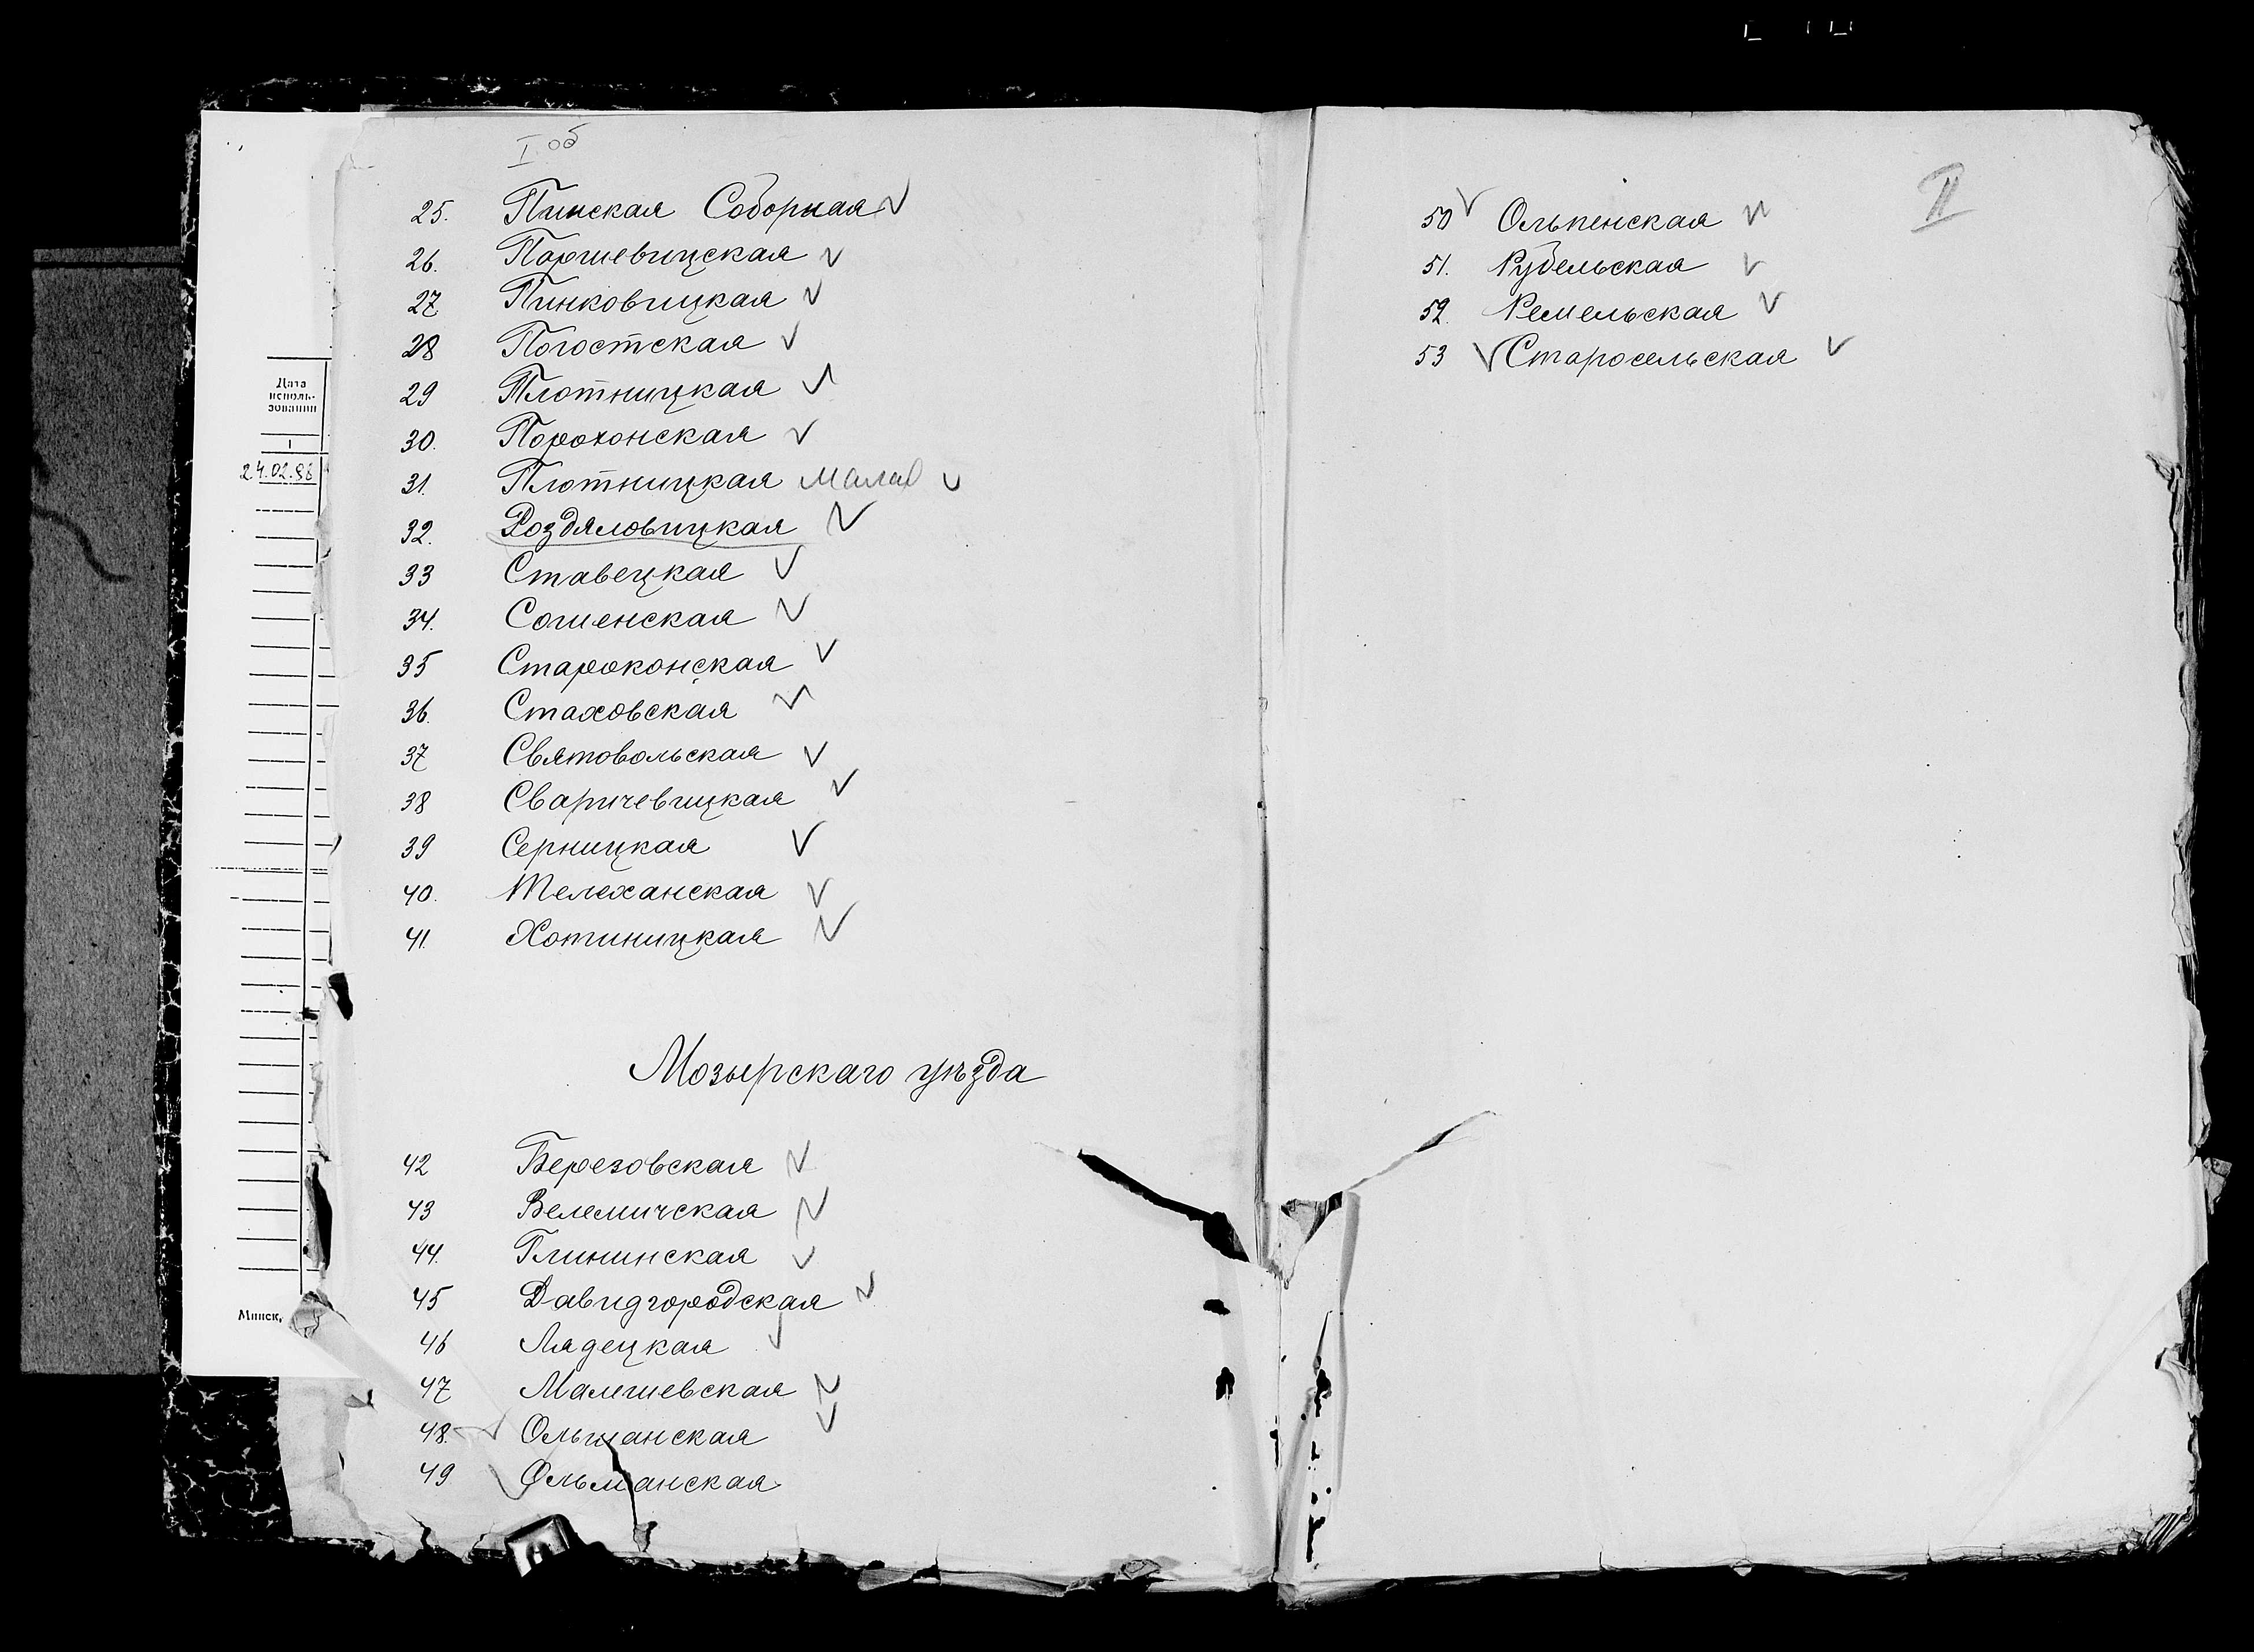 I об
25. Пинская Соборная
26. Паршевицская
27 Пинковицкая
28 Погостская
29 Плотницкая
30. Порохонская
31. Плотницкая Малая
32. Роздяловицкая
33 Ставецкая
34. Сошенская
35 Староконская
36. Стаховская
37 Святовольская
38 Сваричевицкая
39 Серницкая
40. Телеханская
41. Хотиницкая
Мозырскаго уѣзда
42 Березовская
43 Велемичская
44. Глининская
45 Давидгородская
46 Лядецкая
47 Мамшевская
48. Ольшанская
49 Ольманская
Дата
исполь-
зования
1
24.02.96
Минск,
II
50 Ольпенская
51. Рубельская
52. Ремельская
53 Старосельская